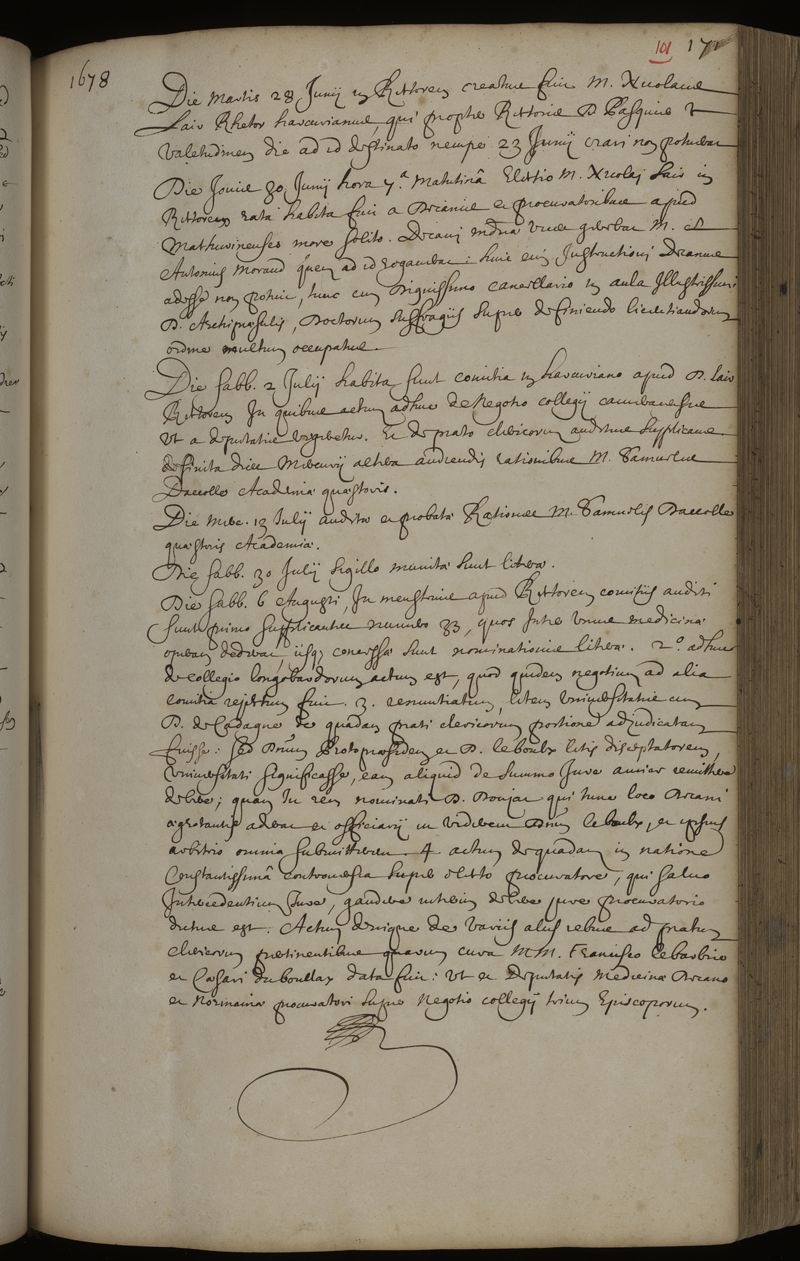 1678
101 171
Die Martis 28 Junij in Rectorem creatus fuit M. Nicolaus
Lair Rhetor harcurianus, qui propter Rectoris D. Pasquier
valetudinem die ad id destinato nempe 23 Junij creari non potuerat
Die Jovis 30 Junij hora 7.a Matutinâ Electio M. Nicolaj Lair in
Rectorem rata habita fuit a Decanis et procuratoribus apud
Mathurinenses more solito. Decani vices gerebat M.
Antonius Morand quem ad id rogaverat: huic enim Instructioni Decanus
adesse non potuit, tunc cum Dignissimo cancellario in aula Illustrissimi
D. Archipraesulis, Doctorum suffragiis super definiendo licentiandorum
ordine multum occupatus.
Die sabb. 2 Julij habita sunt comitia in harcuriano apud D. Lair
Rectorem In quibus actum adhuc de Negotio collegij cameracensis
ut a deputatis Et de prato clericorum auditus supplicans.
definita dies Mercurij altera audiendis rationibus M. Samuelis
Dacolle Academiae quaestoris.
Die merc. 13 Julij auditae et probatae Rationes M. Samuelis Dacolle
quaestoris Academiae.
Die sabb. 30 Julij sigillo munitae sunt literae.
Die sabb. 6 Augusti, In menstruis apud Rectorem comitiis auditi
sunt primo supplicantes numero 33, quos inter unus medicinae
operam dederat, iisq; concessae sunt nominationis literae. 2.o adhuc
de collegio longobardorum actum est, quod quidem negotium ad alia
comitia rejectum fuit. 3. renuntiatum, litem universitatis cum
D. de Cadagne de quadam prati clericorum portione adjudicatam
fuisse: sed Dnum Protopraesidem et D. le boulx litis disceptatorem,
universitati significasse, eam aliquid de summo Jure amice remittere
debere; quam In rem nominati D. Doujat qui tunc loco Decani
aegrotantis aderat et officiarij ut viderent Dnum le boulx, et ipsius
arbitrio omnia submitterent. 4. actum de quadam in natione
Constantissimâ controversia super electo procuratore, qui salvo
Intercedentium Jure, gaudere interim debere jure procuratorio
dictus est. Actum denique de variis aliis rebus ad pratum
clericorum pertinentibus quarum cura MM. Francisco le barbier
et Caesari du boullay data fuit: ut et Deputatis Medicinae Decano
et Normaniae procuratori super Negotio collegij trium Episcoporum.